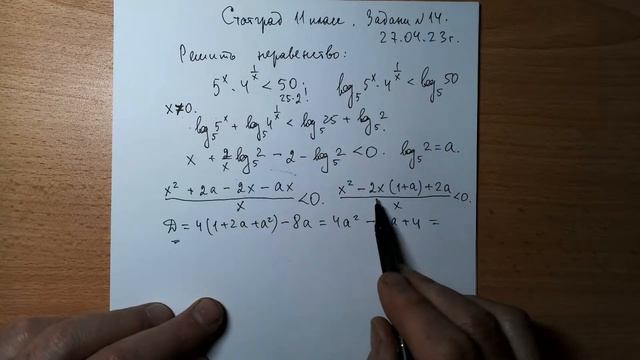 Статград 11 класс. Задани №14.
27.04.23г.
Решить неравенство:
5^x · 4^(1/x) < 50; log_5 5^x · 4^(1/x) < log_5 50
25·2
x ≠ 0.
log_5 5^x + log_5 4^(1/x) < log_5 25 + log_5 2
x + 2/x log_5 2 - 2 - log_5 2 < 0. log_5 2 = a.
(x² + 2a - 2x - ax)/x < 0. (x² - 2x(1+a) + 2a)/x < 0.
D = 4(1+2a+a²) - 8a = 4a² - a + 4 =